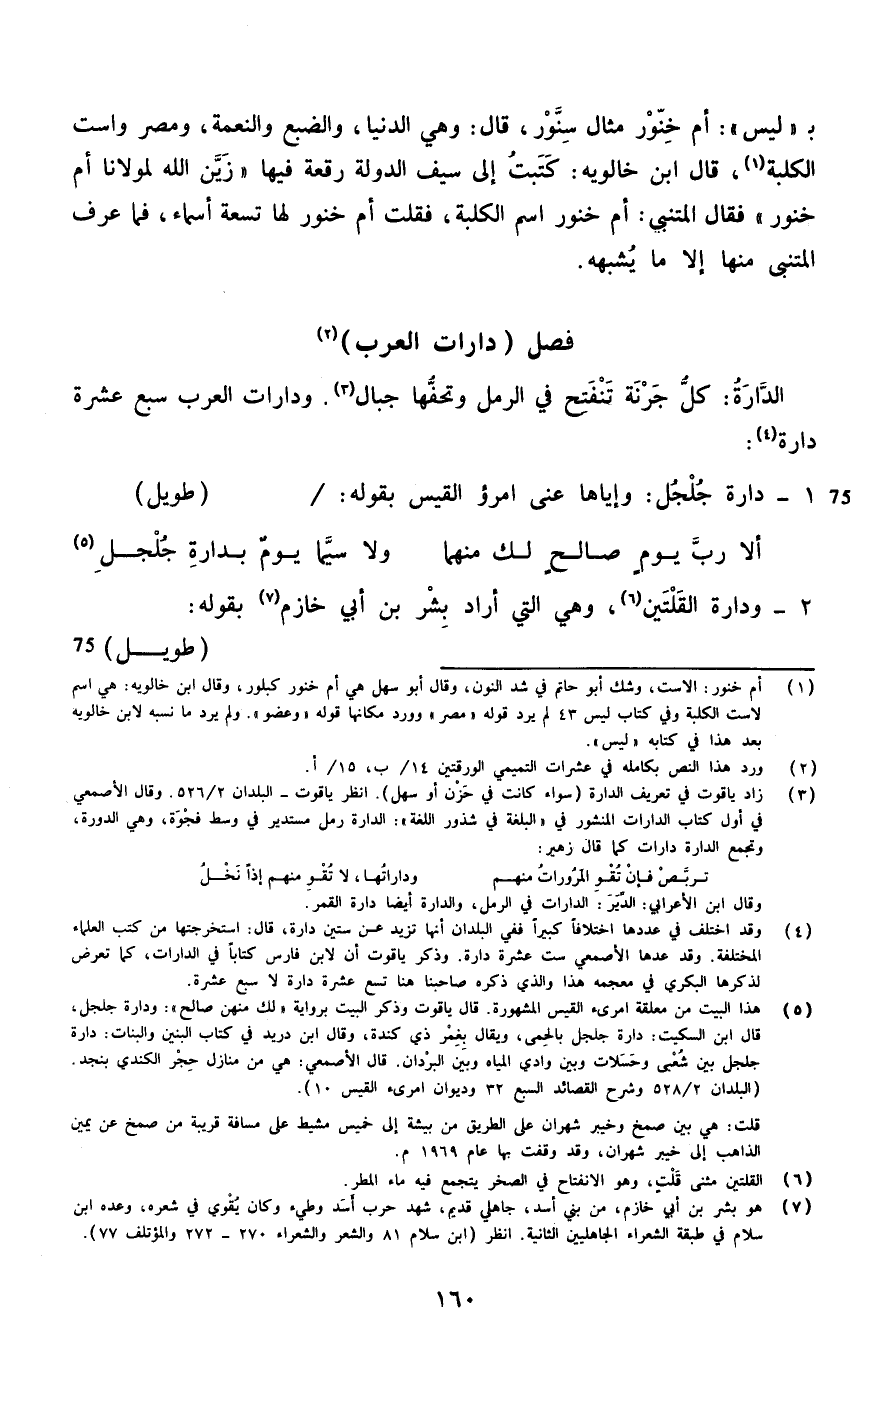 بـ « ليس » : أم خِنَّوْر مثال سِنَّوْر ، قال : وهي الدنيا ، والضبع والنعمة ، ومصر واست
الكلبة(١) ، قال ابن خالويه : كَتَبتُ إلى سيف الدولة رقعة فيها « زَيَّن الله لمولانا أم
خنور » فقال المتنبي : أم خنور اسم الكلبة ، فقلت أم خنور لها تسعة أسماء ، فما عرف
المتنبي منها إلا ما يُشبهه .
فصل ( دارات العرب )(٢)
الدَّارَةُ : كلُّ جَرْنَة تَنْفَتِح في الرمل وتحفُّها جبال(٣) . ودارات العرب سبع عشرة
دارة(٤) :
75 ١ ـ دارة جُلْجُل : وإياها عنى امرؤ القيس بقوله : / ( طويل )
ألا ربَّ يـوم صـالـحٍ لـك منهما ولا سيَّما يـومٌ بـدارةِ جُلْجـلِ(٥)
٢ ـ ودارة القَلْتَين(٦) ، وهي التي أراد بِشْر بن أبي خازم(٧) بقوله :
( طويـــل ) 75
(١) أم خنور : الاست ، وشك أبو حاتم في شد النون ، وقال أبو سهل هي أم خنور كبلور ، وقال ابن خالويه : هي اسم
لاست الكلبة وفي كتاب ليس ٤٣ لم يرد قوله « مصر » وورد مكانها قوله « وعضو » . ولم يرد ما نسبه لابن خالويه
بعد هذا في كتابه « ليس » .
(٢) ورد هذا النص بكامله في عشرات التميمي الورقتين ١٤/ ب ، ١٥/ أ .
(٣) زاد ياقوت في تعريف الدارة ( سواء كانت في حَزْن أو سهل ) . انظر ياقوت ـ البلدان ٥٢٦/٢ . وقال الأصمعي
في أول كتاب الدارات المنشور في « البلغة في شذور اللغة » : الدارة رمل مستدير في وسط فجْوَة ، وهي الدورة ،
وتجمع الدارة دارات كما قال زهير :
تـربَّـصْ فـإنْ تُقْـوِ المَرُوراتُ منهـم وداراتُهـا ، لا تُقْـوِ منهـم إذاً نَخْـلُ
وقال ابن الأعرابي : الدِّيَر : الدارات في الرمل ، والدارة أيضا دارة القمر .
(٤) وقد اختلف في عددها اختلافاً كبيراً ففي البلدان أنها تزيد عـن ستين دارة ، قال : استخرجتها من كتب العلماء
المختلفة . وقد عدها الأصمعي ست عشرة دارة . وذكر ياقوت أن لابن فارس كتاباً في الدارات ، كما تعرض
لذكرها البكري في معجمه هذا والذي ذكره صاحبنا هنا تسع عشرة دارة لا سبع عشرة .
(٥) هذا البيت من معلقة امرىء القيس المشهورة . قال ياقوت وذكر البيت برواية « لك منهن صالح » : ودارة جلجل ،
قال ابن السكيت : دارة جلجل بالحمى ، ويقال بِغِمْر ذي كندة ، وقال ابن دريد في كتاب البنين والبنات : دارة
جلجل بين شُعْبى وحَسَلات وبين وادي المياه وبين البرْدان . قال الأصمعي : هي من منازل حِجْر الكندي بنجد .
( البلدان ٥٢٨/٢ وشرح القصائد السبع ٣٢ وديوان امرىء القيس ١٠ ) .
قلت : هي بين صمخ وخيبر شهران على الطريق من بيشة إلى خميس مشيط على مسافة قريبة من صمخ عن يمين
الذاهب إلى خيبر شهران ، وقد وقفت بها عام ١٩٦٩ م .
(٦) القلتين مثنى قَلْتٍ ، وهو الانفتاح في الصخر يتجمع فيه ماء المطر .
(٧) هو بشر بن أبي خازم ، من بني أسد ، جاهلي قديم ، شهد حرب أسَد وطيء وكان يُقْوي في شعره ، وعده ابن
سلام في طبقة الشعراء الجاهليين الثانية . انظر ( ابن سلام ٨١ والشعر والشعراء ٢٧٠ ـ ٢٧٢ والمؤتلف ٧٧ ) .
١٦٠